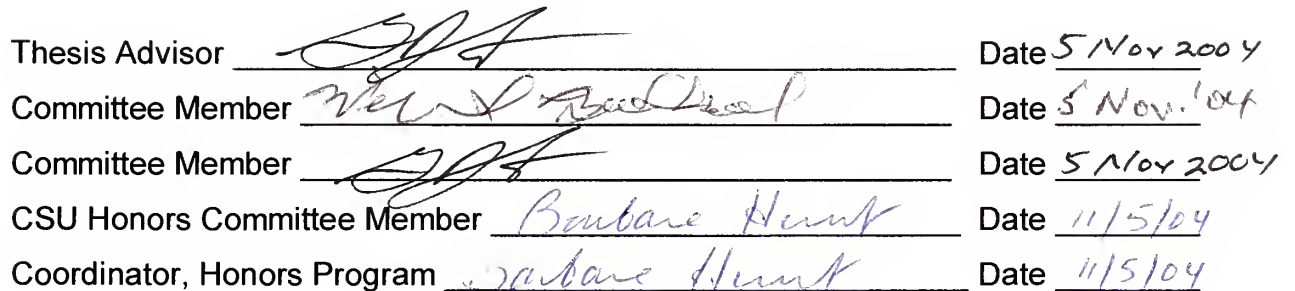 Thesis Advisor Date 5 Nov 2004
Committee Member Date 5 Nov. '04
Committee Member Date 5 Nov 2004
CSU Honors Committee Member Barbara Hunt Date 11/5/04
Coordinator, Honors Program Barbara Hunt Date 11/5/04